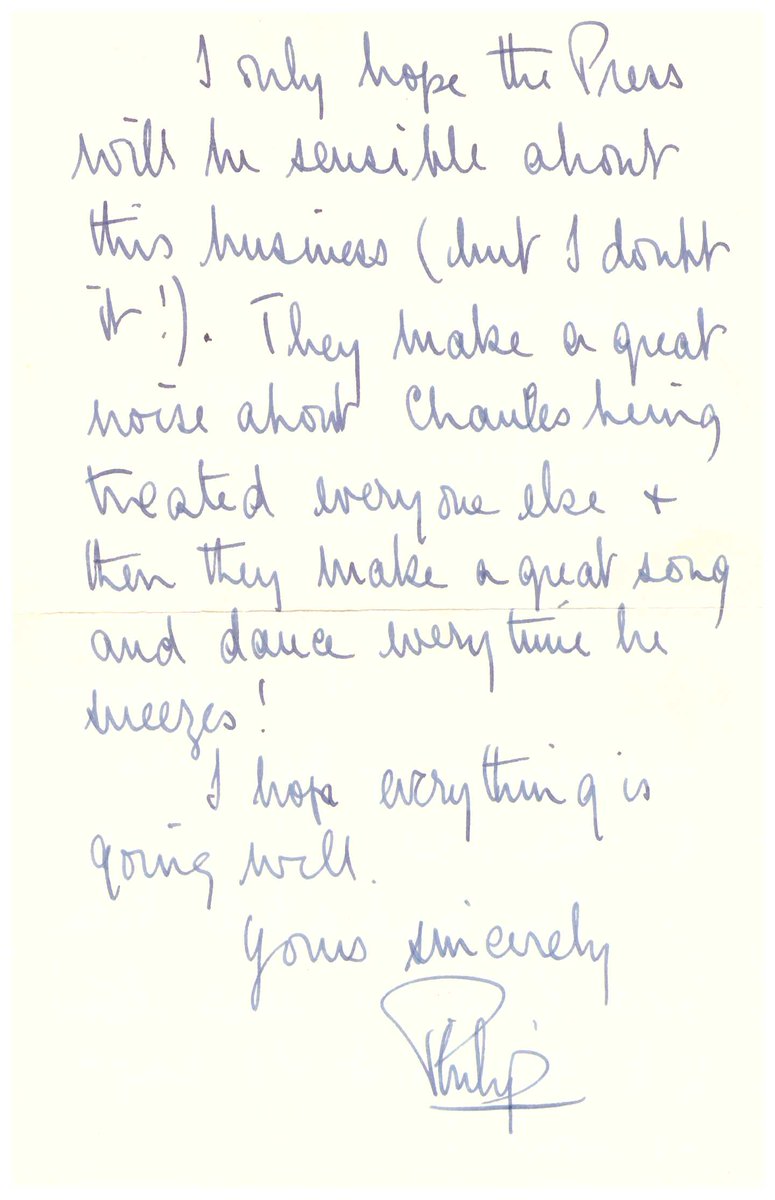 I only hope the Press
will be sensible about
this business (but I doubt
it!). They make a great
noise about Charles being
treated everyone else +
then they make a great song
and dance everytime he
sneezes!
I hope everything is
going well.
Yours sincerely
Philip